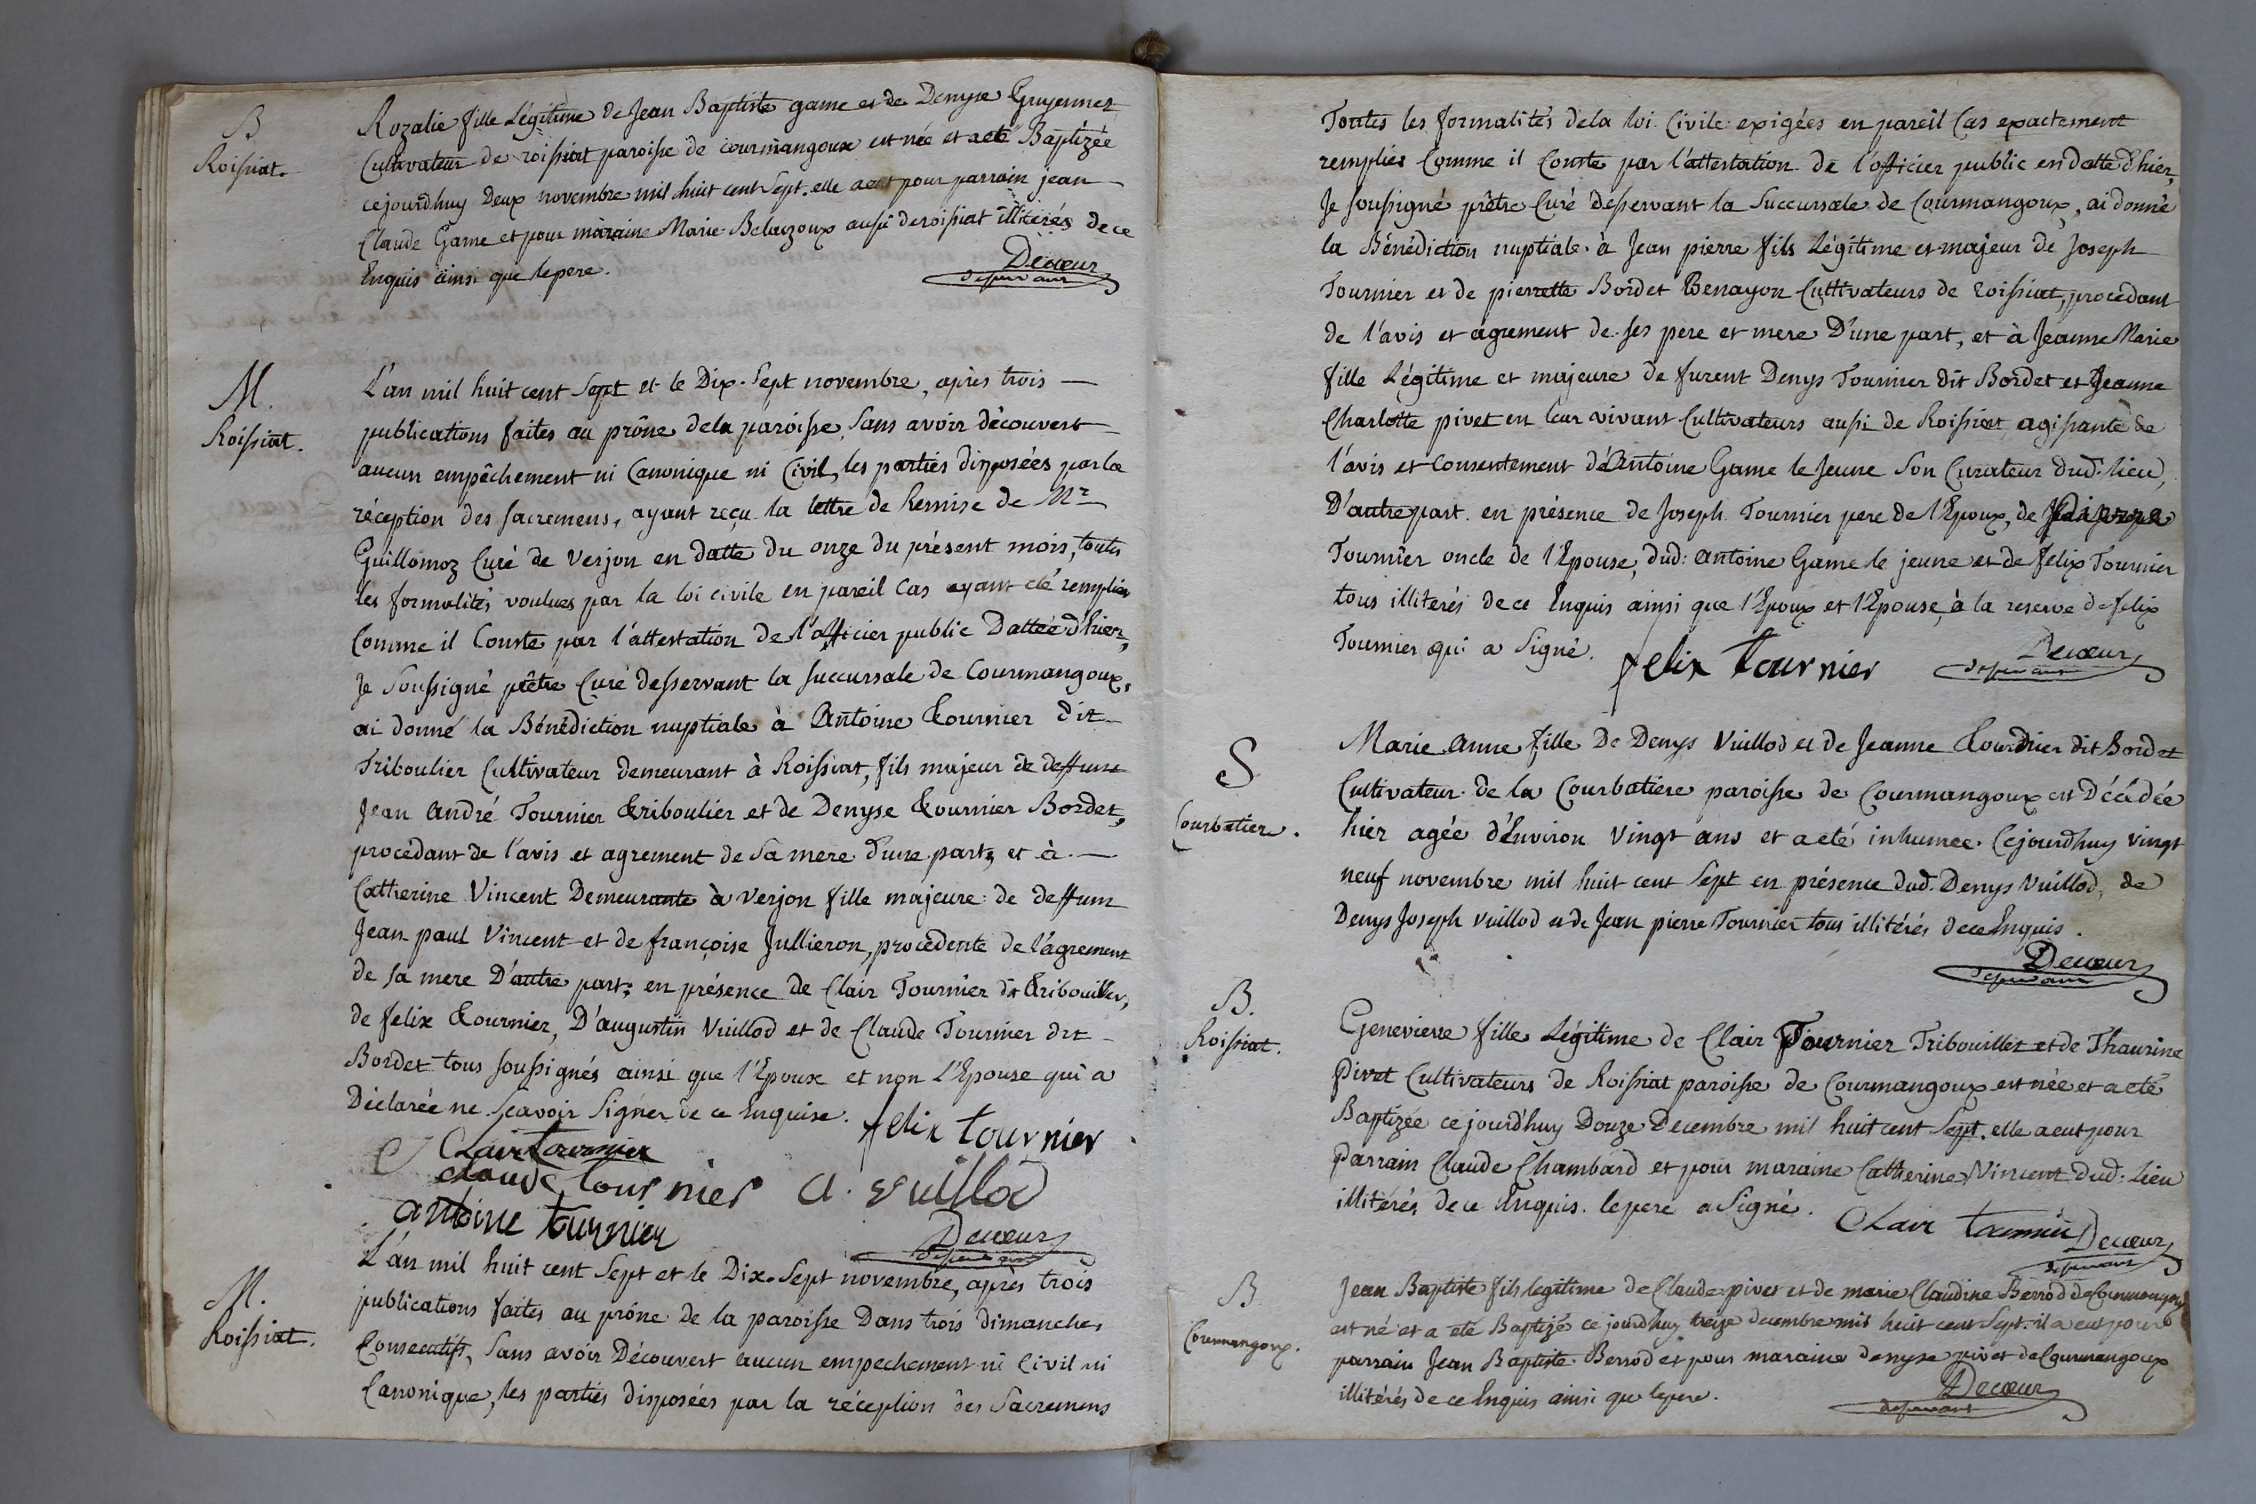 B
Roissiat.
Rozalie fille Légitime de Jean Baptiste game et de Denyse Guyennet
Cultivateur de roissiat paroisse de courmangoux est née et a eté Baptizée
cejourdhuy Deux novembre mil huit cent Sept. elle a eut pour parrain jean
Claude Game et pour maraine Marie Belouzoux aussi de roissiat illiterés de ce
Enquis ainsi que le pere.
Decœur
desservant
M.
Roissiat.
L'an mil huit cent Sept et le Dix-Sept novembre, après trois
publications faites au prône dela paroisse, Sans avoir découvert
aucun empêchement ni Canonique ni Civil, les parties disposées par la
réception des sacremens, ayant reçu la lettre de Remise de Mr
Guillomoz Curé de Verjon en datte du onze du présent mois, toutes
les formalités voulues par la loi civile en pareil Cas ayant eté remplies
Comme il Conste par l'attestation de l'officier public Dattée d'hier,
Je Soussigné prêtre Curé desservant la Succursale de Courmangoux,
ai donné la Bénédiction nuptiale à Antoine Tournier dit
Triboulier Cultivateur demeurant à Roissiat, fils majeur de deffunt
Jean André Tournier Triboulier et de Denyse Tournier Bordet,
procédant de l'avis et agrement de Sa mere d'une part, et à
Catherine Vincent Demeurante à Verjon fille majeure de deffunt
Jean paul Vincent et de françoise Jullieron, procédente de l'agrement
de sa mere D'autre part; en présence de Clair Tournier dt Tribouiller,
de felix Tournier, D'augustin Vuillod et de Claude Tournier dit
Bordet tous soussignés ainsi que l'Epoux et non L'Epouse qui a
Déclarée ne Scavoir Signer de ce Enquise.
felix tournier
Clair tournier
claude tournier
a. vuillod
antoine turnier
Decœur
desservant
M.
Roissiat.
L'an mil huit cent Sept et le Dix-Sept novembre, après trois
publications faites au prône de la paroisse Dans trois dimanches
Consecutifs, Sans avoir Découvert aucun empechement ni Civil ni
Canonique, les parties disposées par la réception des Sacremens
Toutes les formalités dela loi Civile exigées en pareil Cas exactement
remplies Comme il Conste par l'attestation de l'officier public en datte d'hier,
Je soussigné prêtre Curé desservant la Succursale de Courmangoux, ai donné
la Bénédiction nuptiale à Jean pierre fils Légitime et majeur de Joseph
Tournier et de pierrette Bordet Benayon Cultivateurs de roissiat, procedant
de l'avis et agrement de ses pere et mere D'une part, et à Jeanne Marie
fille Légitime et majeure de furent Denys Tournier dit Bordet et Jeanne
Charlotte pivet en leur vivant Cultivateurs aussi de Roissiat agissante de
l'avis et Consentement d'Antoine Game le Jeune Son Curateur dud. lieu,
D'autre part. en présence de Joseph Tournier pere de l'Epoux, de
Tournier oncle de l'Epouse, dud: antoine Game le jeune et de felix Tournier
tous illiterés de ce Enquis ainsi que l'Epoux et l'Epouse, à la reserve de felix
Tournier qui a Signé.
felix tournier
Decœur
desservant
S
Courbatiere.
Marie Anne fille De Denys Vuillod et de Jeanne Tournier dit Bordet
Cultivateur de la Courbatiere paroisse de Courmangoux est Décédée
hier agée d'Environ Vingt ans et a eté inhumée Cejourdhuy vingt
neuf novembre mil huit cent Sept en présence dud. Denys Vuillod, de
Denys Joseph Vuillod et de Jean pierre Tournier tous illitérés de ce Enquis.
Decœur
desservant
B.
Roissiat.
Genevieve fille Légitime de Clair Tournier Tribouillet et de Thaurine
Pivet Cultivateurs de Roissiat paroisse de Courmangoux est née et a eté
Baptizée ce jourd'huy Douze Decembre mil huit cent Sept. elle a eut pour
Parrain Claude Chambard et pour maraine Catherine Vincent dud: Lieu
illitérés de ce Enquis. le pere a Signé.
Clair tournier
Decœur
desservant
B
Courmangoux.
Jean Baptiste fils legitime de Claude pivet et de marie Claudine Berrod de Courmangoux
est né et a eté Baptizé ce jourdhuy treize decembre mil huit cent Sept. il a eut pour
parrain Jean Baptiste Berrod et pour maraine denyse pivet de Courmangoux
illitérés de ce Enquis ainsi que le pere.
Decœur
desservant